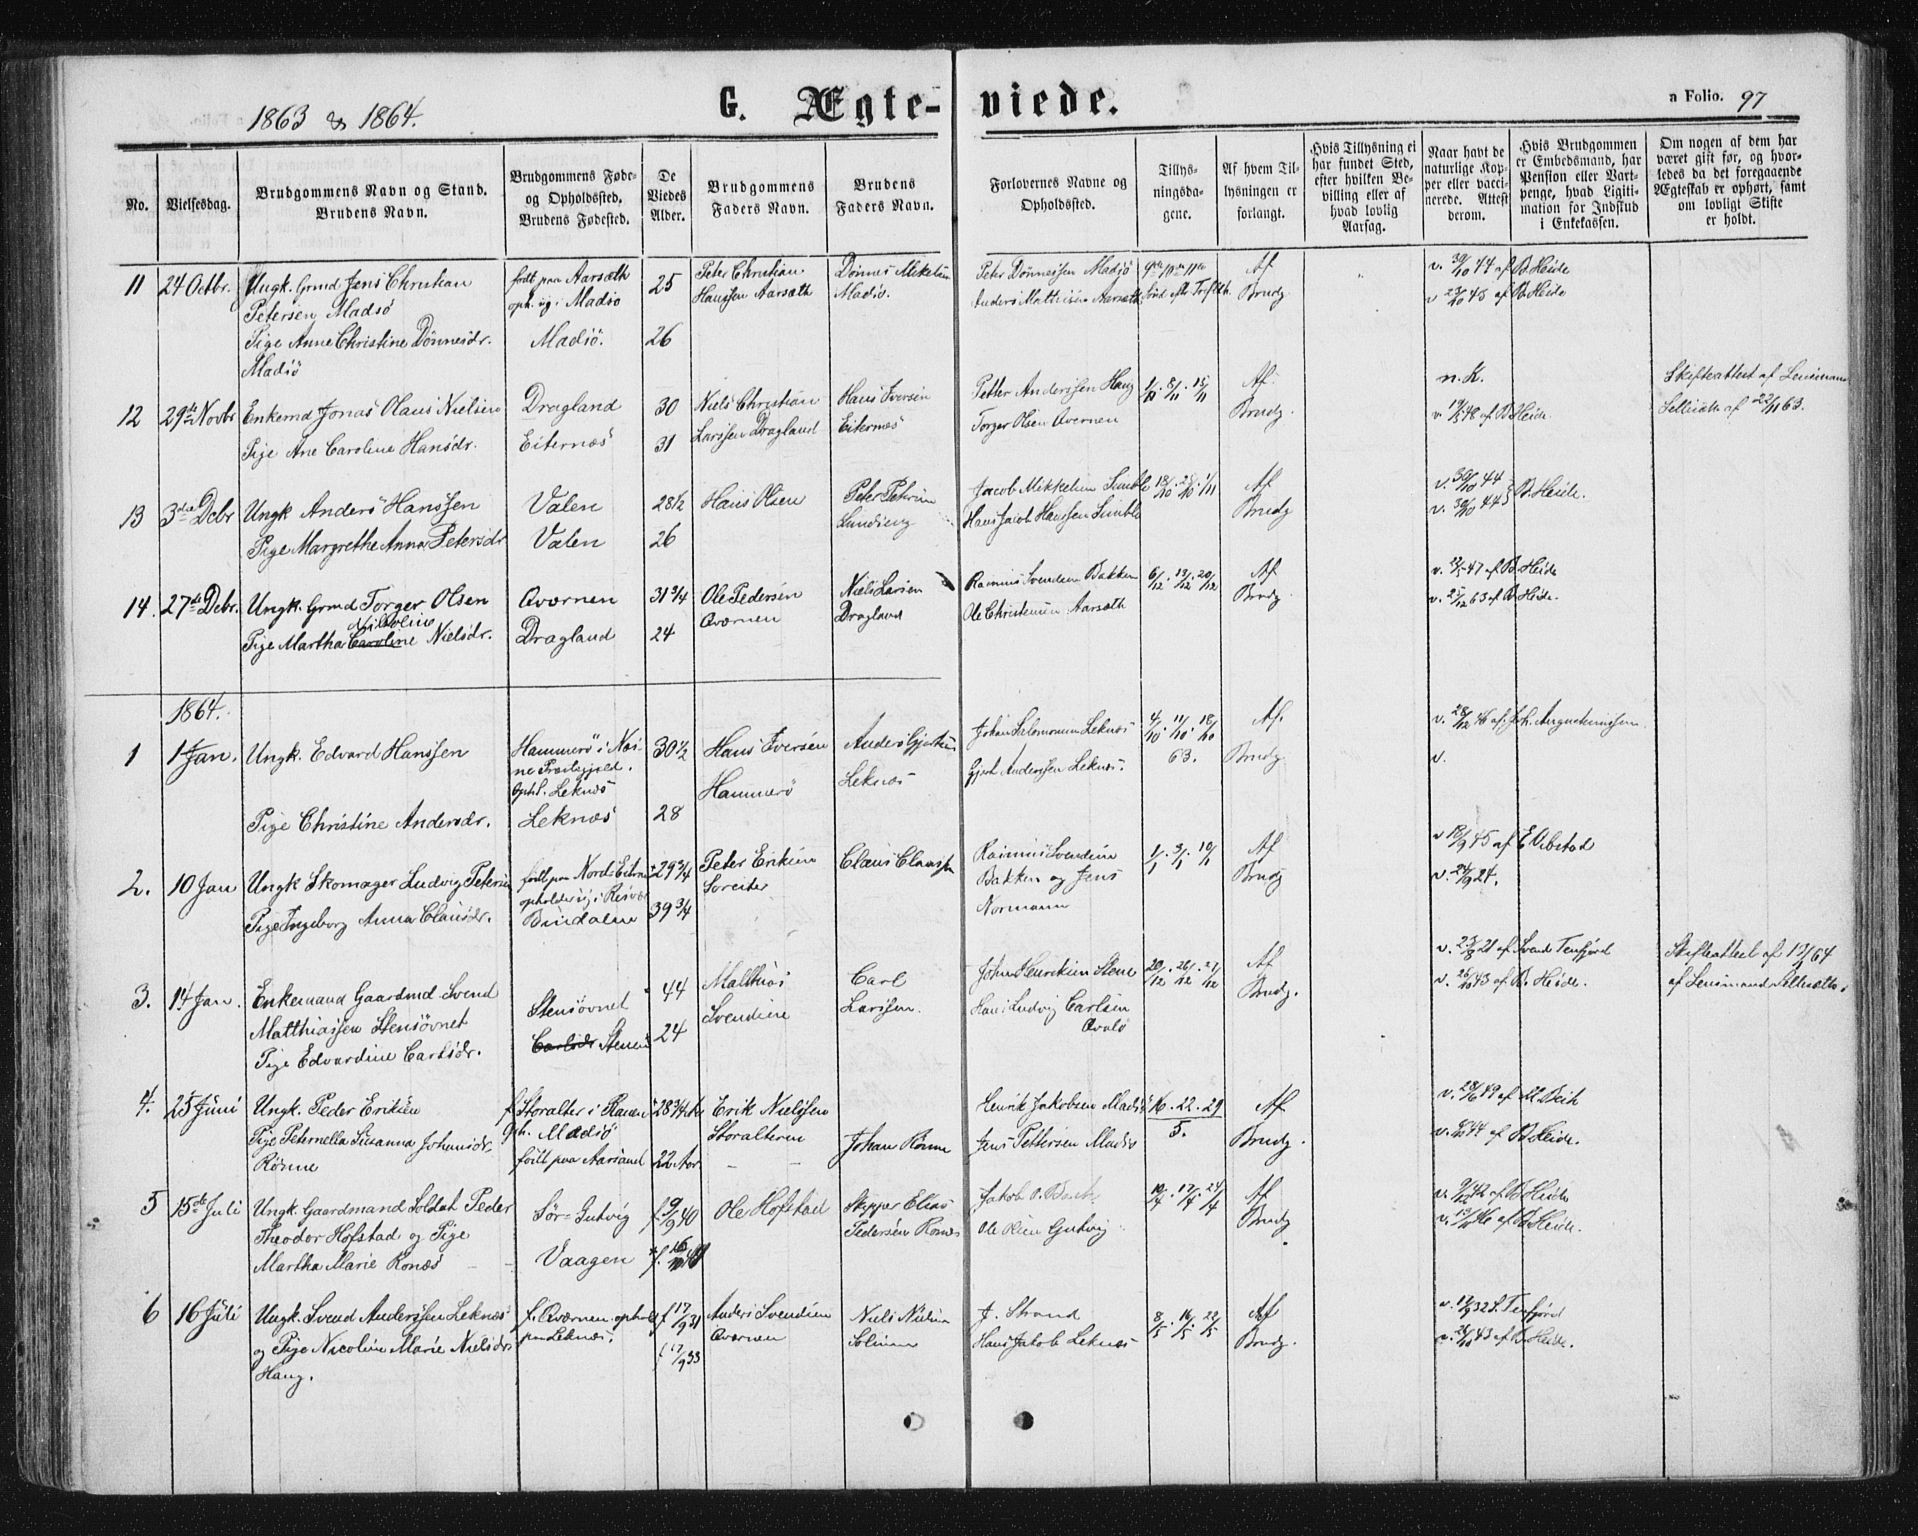 1863 & 1864.
G. Ægte-viede.
a Folio. 97
No.
Vielsesdag.
Brudgommens Navn og Stand.
Brudens Navn.
Brudgommens Føde-
og Opholdssted.
Brudens Fødested.
De
Viedes
Alder.
Brudgommens
Faders Navn.
Brudens
Faders Navn.
Forlovernes Navne og
Opholdssted.
Tillys-
ningsda-
gene.
Af hvem Til-
lysningen er
forlangt.
Hvis Tillysning ei
har fundet Sted,
efter hvilken Be-
villing eller af
hvad lovlig
Aarsag.
Naar havt de
naturlige Kop-
per eller vacci-
nerede. Attest
derom.
Hvis Brudgommen
er Embedsmand, har
Pension eller Vart-
penge, hvad Ligiti-
mation for Indskud
i Enkekassen.
Om nogen af dem har
været gift før, og hvor-
ledes da det foregaaende
Ægteskab er ophørt, samt
om lovligt Skifte
er holdt.
11 24 Octbr. Ungk. Grmd Jens Christian
Petersen Madsö
Pige Anne Christine Dönnesdr.
Madsö
født paa Aarsæth
oph. sig i Madsö
Madsö.
25
26
Peter Christian
Hanssen Aarsæth
Dönnes Mikelsen
Madsö.
Peter Dönnessen Madsö
Anders Matthisen Aarsæth
Af
Brudg.
v. 30/10 44 af B. Heide
v. 23/10 45 af B. Heide
12 29de Novbr Enkemd Jonas Olaus Nielsen
Pige Ane Caroline Hansdr.
Dragland
Eiternæs
30
31
Niels Christian
Larssen Dragland
Hans Iversen
Eiternæs
Petter Anderssen Haug
Torger Olsen Aværnen
1/11. 8/11. 15/11
Af
Brudg.
n. K.
v. 19/5 48 af B. Heide
Skifteattest af Lensmand
af 22/11 63.
13 3die Dcbr Ungk Anders Hanssen
Pige Margrethe Anna Petersdr
Valen
Valen
28 1/2
26
Hans Olsen
Peter Petersen
Lundseng
Jacob Mikkelsen Simle
Hans Jacob Hanssen Simle
18/10. 25/10. 1/11
Af
Brudg
v. 30/10 44
v. 30/10 44 B. Heide.
14. 27de Dcbr. Ungk. Grmd Torger Olsen
Nicoline
Pige Martha Caroline Nielsdr.
Aværnen
Dragland
31 3/4
24
Ole Pedersen
Aværnen
Niels Larsen
Dragland
Rasmus Svendsen Bakken
Ole Christensen Aarsæth
6/12. 13/12. 20/12
Af
Brudg.
v. 12/5 47 af B. Heide
v. 27/12 63 af B. Heide.
1864.
1 1 Jan. Ungk. Edvard Hanssen
Pige Christine Andersdr.
Hammerö i Næs-
ne Præstegjeld.
Oph. Leknæs
Leknæs
30 1/2
28
Hans Iversen
Hammerö
Anders Gjertsen
Leknæs
Johan Salomonsen Leknæs
Gjert Anderssen Leknæs.
4/10. 11/10. 18/10
63.
Af.
Brudg.
v. 28/12 46 af Joh. Augustinussen
v.
2. 10 Jan Ungk Skomager Ludvig Petersen
Pige Ingeborg Anna Clausdr.
født paa Nord-Eitern
opholder sig i Risvær
Bindalen
29 3/4
39 3/4
Peter Eriksen
Soreiter
Claus Claussen
Rasmus Svendsen
Bakken og Jens
Normann
1/1. 3/1. 10/1
Af
Brudg
v. 18/9 45 af E. Vibstad
v. 24/9 24.
3. 14 Jan. Enkemand Gaardmd Svend
Matthiassen Stensövnet
Pige Edvardine Carlsdr.
Stensövnet
Carlsdr Stensö
44
24
Matthias
Svendsen
Carl
Larssen.
Johan Henriksen Stene
Hans Ludvig Carlsen
Avalö
20/12. 26/12. 27/12
Af
Brudg.
v. 23/8 21 af Svend Tenfjord
v. 26/10 43 af B. Heide.
Skifteattest af 12/1 64
af Lensmand
4. 25 Juni Ungk. Peder Eriksen
Pige Peternella Susanna Johansdr.
Rönne
f. Storalter i Ranen
Oph. Madsö
födt paa Aarsand
28 3/4 Aar
22 Aar
Erik Nielssen
Storalteren
Johan Rönne
Henrik Jakobsen Madsö
Jens Pettersen Madsö
16. 22. 29
5.
Af
Brudg.
v. 28/6 49 af M. Beik
v. 44 af B. Heide.
5 15de Juli Ungk. Gaardmand Soldat Peder
Theodor Hofstad og Pige
Martha Marie Ronæs
Sör-Gutvig
Vaagen
f 9/9 40
f. 16/10 41
Ole Hofstad
Skipper Elias
Pedersen Ronæs
Jakob O.
Ole Olsen Gutvig
10/4. 17/4. 24/4
Af
Brudg
v. 9/10 42 af B. Heide
v. 13/10 46 af B. Heide.
6 16 Juli Ungk. Svend Anderssen Leknæs
og Pige Nicoline Marie Nielsdr
Haug.
f. Aværnen ophold
paa Leknæs.
f 17/9 31
f 17/9 33
Anders Svendsen
Aværnen
Niels Nielsen
Solsem
J. Strand
Hans Jakob Leknæs
8/5. 16/5. 22/5
Af
Brudg.
v. 17/9 32 S. Tenfjord
v. 26/10 43 af B. Heide.